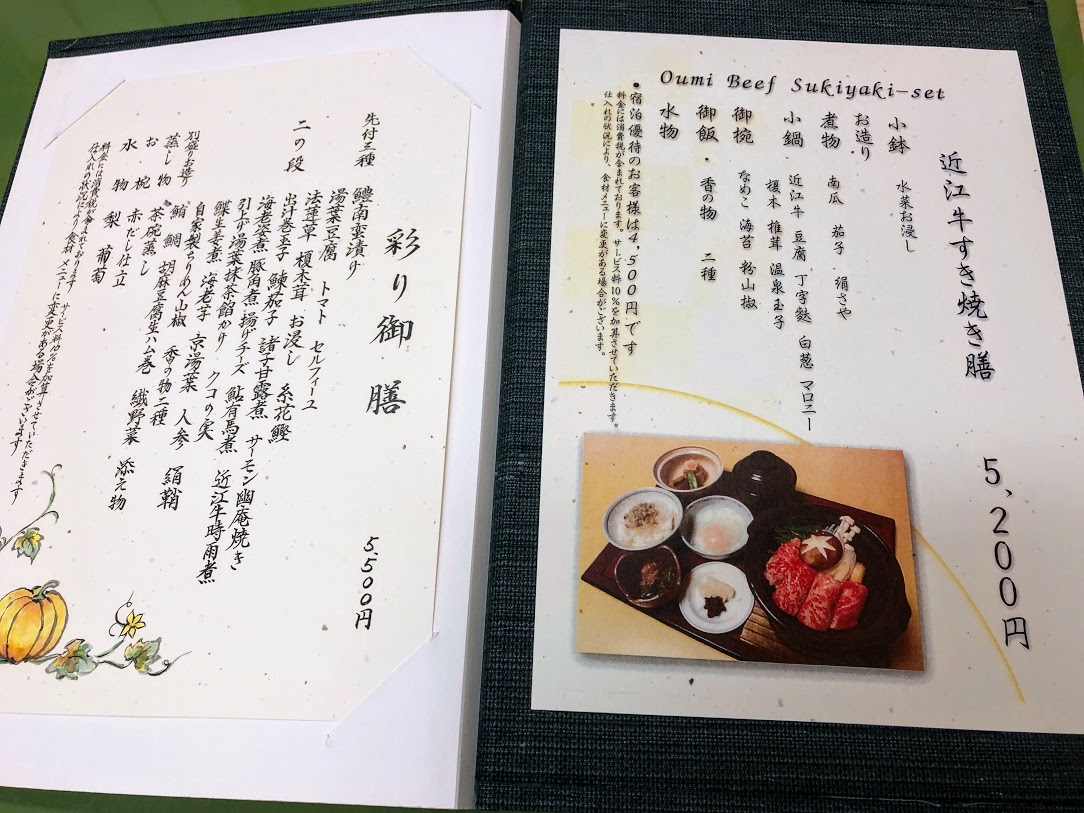 Oumi Beef Sukiyaki-set
近江牛すき焼き膳
5,200円
小鉢 水菜お浸し
お造り
煮物 南瓜 茄子 絹さや
小鍋 近江牛 豆腐 丁字麩 白葱 マロニー
榎木 椎茸 温泉玉子
御椀 なめこ 海苔 粉山椒
御飯・香の物 二種
水物
・宿泊優待のお客様は4,500円です
料金には消費税が含まれております。サービス料10%を加算させていただきます。
仕入れの状況により、食材・メニューに変更がある場合がございます。
彩り御膳
5.500円
先付三種 鱧南蛮漬け
湯葉豆腐 トマト セルフィーユ
法蓮草 榎木茸 お浸し 糸花鰹
二の段 出汁巻玉子 鰊茄子 諸子甘露煮 サーモン幽庵焼き
海老姿煮 豚角煮 揚げチーズ 鮎有馬煮 近江牛時雨煮
引上げ湯葉抹茶餡かけ クコの実
鰈生姜煮 海老芋 京湯葉 人参 絹鞘
自家製ちりめん山椒 香の物二種
別盛りお造り 鮪 鯛 胡麻豆腐生ハム巻 繊野菜 添え物
蒸し物 茶碗蒸し
お椀 赤だし仕立
水物 梨 葡萄
料金には消費税が含まれております サービス料10%を加算させていただきます
仕入れの状況により食材・メニューに変更がある場合がございます